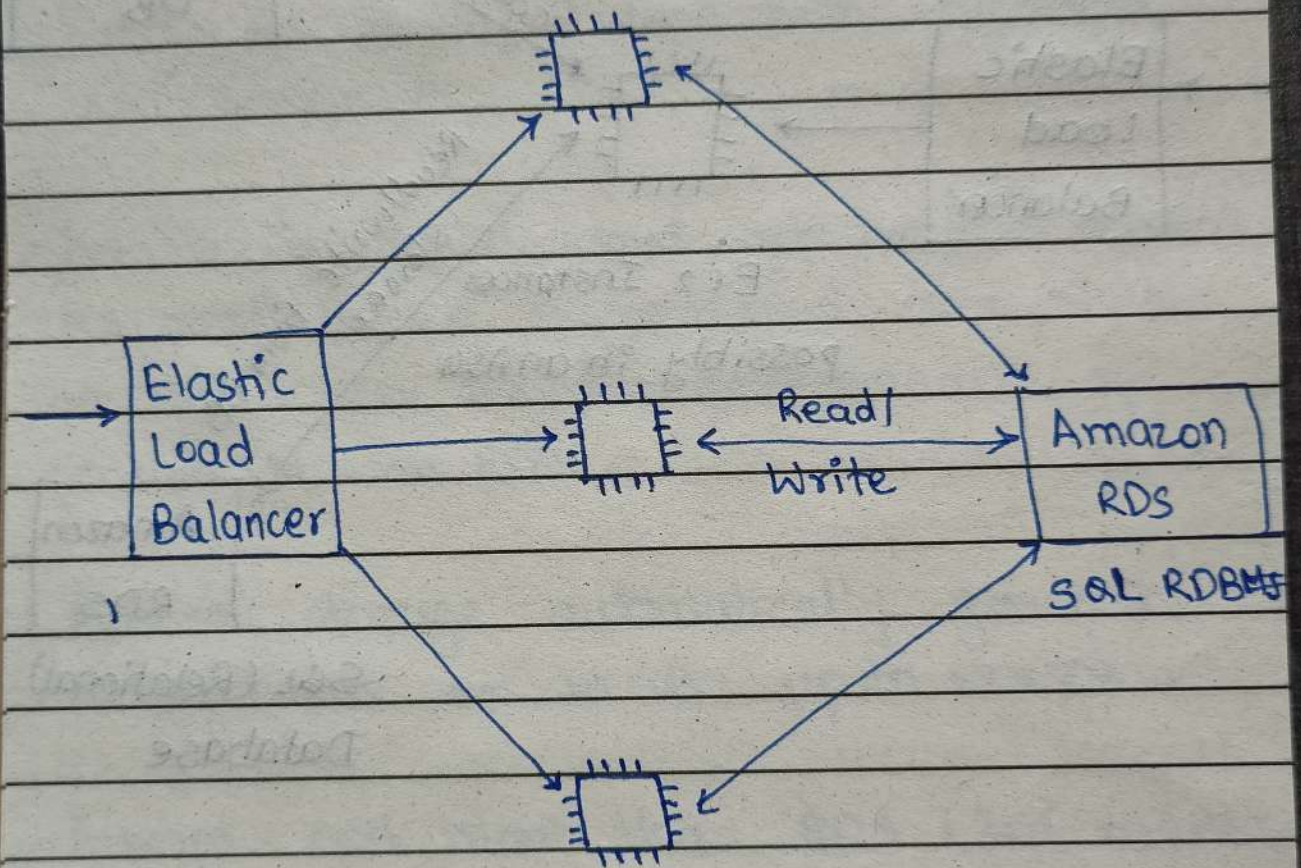 Elastic
Load
Balancer
Read/
Write
Amazon
RDS
SQL RDBMS